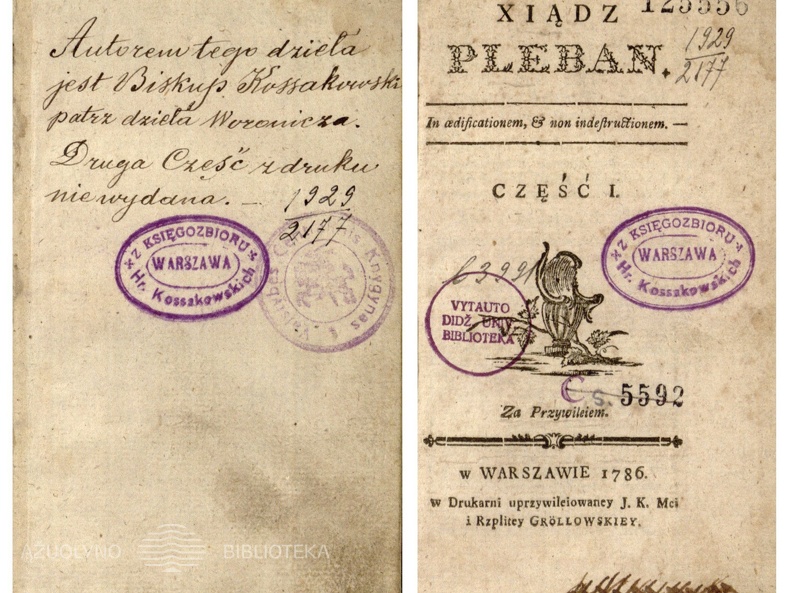 Autorem tego dzieła
jest Biskup Kossakowski
patrz dzieła Woronicza.
Druga Część z druku
nie wydana. —
1929
2177
Z KSIĘGOZBIORU
WARSZAWA
Hr. Kossakowskich
Knygynas
AŽUOLYNO BIBLIOTEKA
XIĄDZ
125556
PLEBAN.
1929
2177
In ædificationem, & non indeſtructionem. —
CZĘŚĆ I.
Z KSIĘGOZBIORU
WARSZAWA
Hr. Kossakowskich
VYTAUTO
DIDŽ. UNIV.
BIBLIOTEKA
C. S. 5592
Za Przywileiem.
w WARSZAWIE 1786.
w Drukarni uprzywileiowaney J. K. Mci
i Rzplitey GRÖLLOWSKIEY.